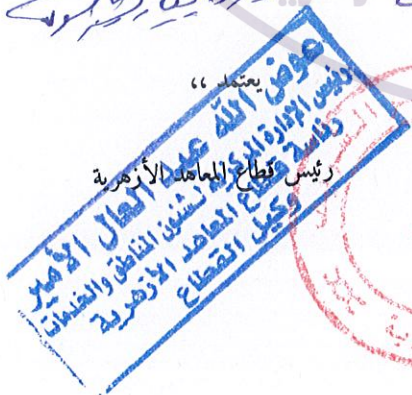 يعتمد ،،
رئيس قطاع المعاهد الأزهرية
عوض الله عبد العال الأمير
رئيس الإدارة المركزية لشئون المناطق والخدمات
رئاسة قطاع المعاهد الأزهرية
وكيل القطاع